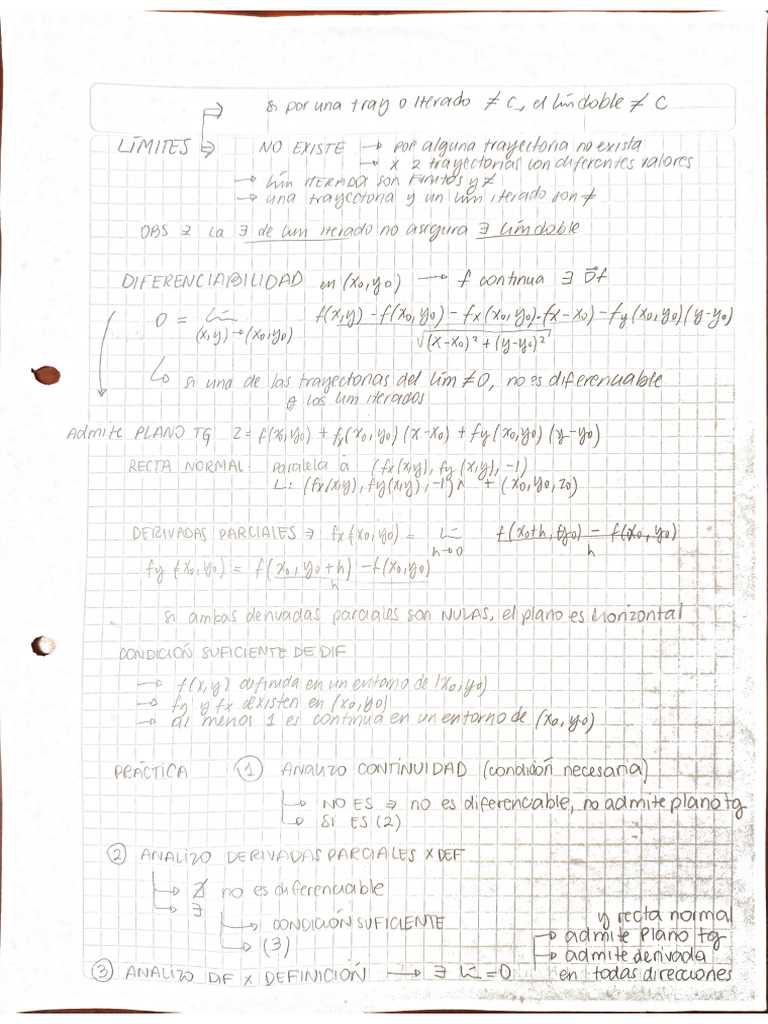 si por una tray o iterado ≠ C, el lím doble ≠ C
LÍMITES → NO EXISTE → por alguna trayectoria no exista
→ x 2 trayectorias con diferentes valores
→ Lím ITERADO SON FINITOS y ≠
→ una trayectoria y un lím iterado son ≠
OBS = La ∃ de lím iterado no asegura ∃ lím doble
DIFERENCIABILIDAD en (x₀,y₀) → f continua ∃ D⃗f
0 = Lím (x,y)→(x₀,y₀) f(x,y) - f(x₀,y₀) - fx(x₀,y₀).(x-x₀) - fy(x₀,y₀)(y-y₀) / √(x-x₀)² + (y-y₀)²
↳ si una de las trayectorias del lím ≠ 0, no es diferenciable
o los lím iterados
Admite PLANO TG z = f(x₀,y₀) + fx(x₀,y₀)(x-x₀) + fy(x₀,y₀)(y-y₀)
RECTA NORMAL: paralela a (fx(x,y), fy(x,y), -1)
L: (fx(x,y), fy(x,y), -1)λ + (x₀,y₀,z₀)
DERIVADAS PARCIALES ⇒ fx(x₀,y₀) = Lím h→0 f(x₀+h, y₀) - f(x₀,y₀) / h
fy(x₀,y₀) = f(x₀,y₀+h) - f(x₀,y₀) / h
si ambas derivadas parciales son NULAS, el plano es Horizontal
CONDICIÓN SUFICIENTE DE DIF
→ f(x,y) definida en un entorno de (x₀,y₀)
→ fy y fx existen en (x₀,y₀)
→ al menos 1 es continua en un entorno de (x₀,y₀)
PRÁCTICA ① ANALIZO CONTINUIDAD (condición necesaria)
↳ NO ES ⇒ no es diferenciable, no admite plano tg
↳ SI ES (2)
② ANALIZO DERIVADAS PARCIALES X DEF
↳ ∄ no es diferenciable
↳ ∃
↳ CONDICIÓN SUFICIENTE
↳ (3)
③ ANALIZO DIF X DEFINICIÓN → ∃ Lím = 0
y recta normal
→ admite plano tg
→ admite derivada
en todas direcciones